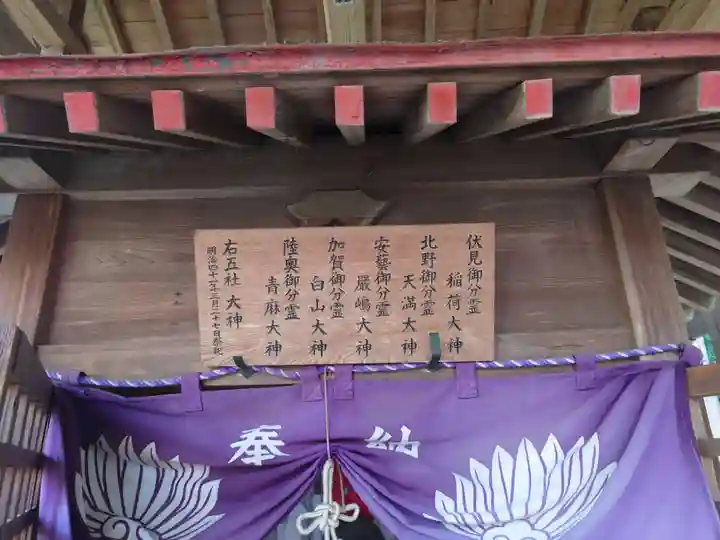 伏見御分霊
稲荷大神
北野御分霊
天満大神
安藝御分霊
嚴嶋大神
加賀御分霊
白山大神
陸奥御分霊
青麻大神
右五社大神
明治四十一年三月二十七日祭祀
奉納